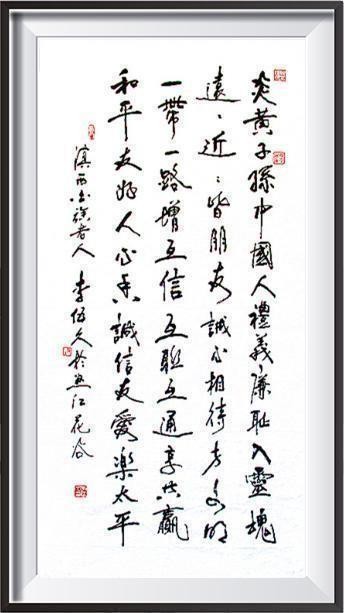 炎黄子孫中國人禮義廉耻入靈魂
遠〻近〻皆朋友誠心相待明
一帶一路增互信互聯互通享共贏
和平友好人心誠信友愛樂太平
滇西人李久於江花谷